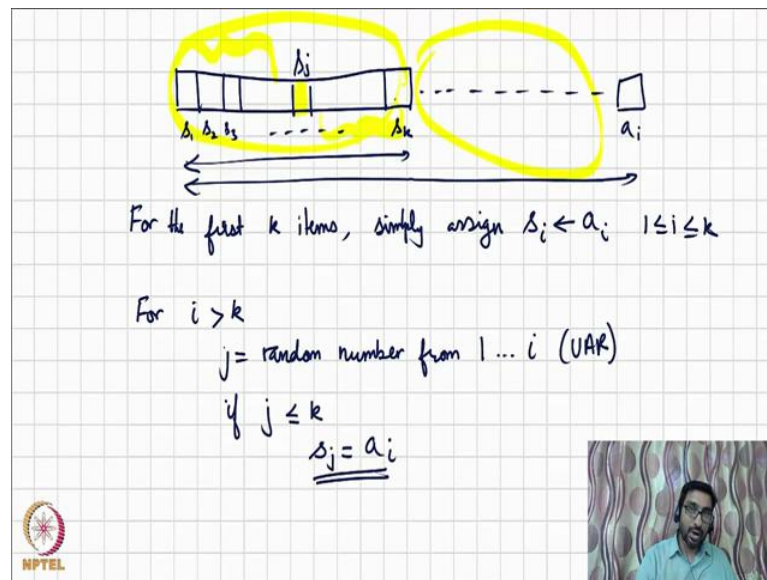 sj
s₁ s₂ s₃ ----- sₖ aᵢ
For the first k items, simply assign sᵢ ← aᵢ 1 ≤ i ≤ k
For i > k
j = random number from 1 ... i (UAR)
if j ≤ k
sj = aᵢ
NPTEL